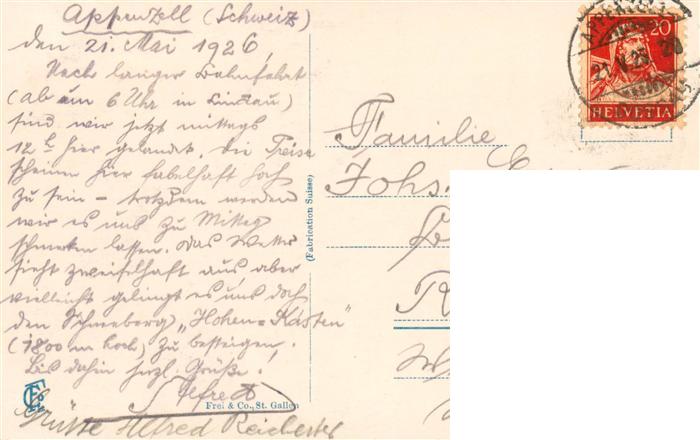 Appenzell (Schweiz)
den 21. Mai 1926,
Nach langer Bahnfahrt
(ab um 6 Uhr in Lindau)
sind wir jetzt mittags
12 h hier gelandet. Die Preise
scheinen hier fabelhaft hoch
zu sein – trotzdem werden
wir es uns zu Mittag
schmecken lassen. Das Wetter
sieht zweifelhaft aus, aber
vielleicht gelingt es uns doch
den Schneeberg „Hohen=Kasten"
(1800 m hoch) zu besteigen.
Bis dahin herzl. Grüße!
Alfred
Grüsse Alfred
(Fabrication Suisse)
Frei & Co., St. Gallen
Familie
Johs.
20
HELVETIA
APPENZELL